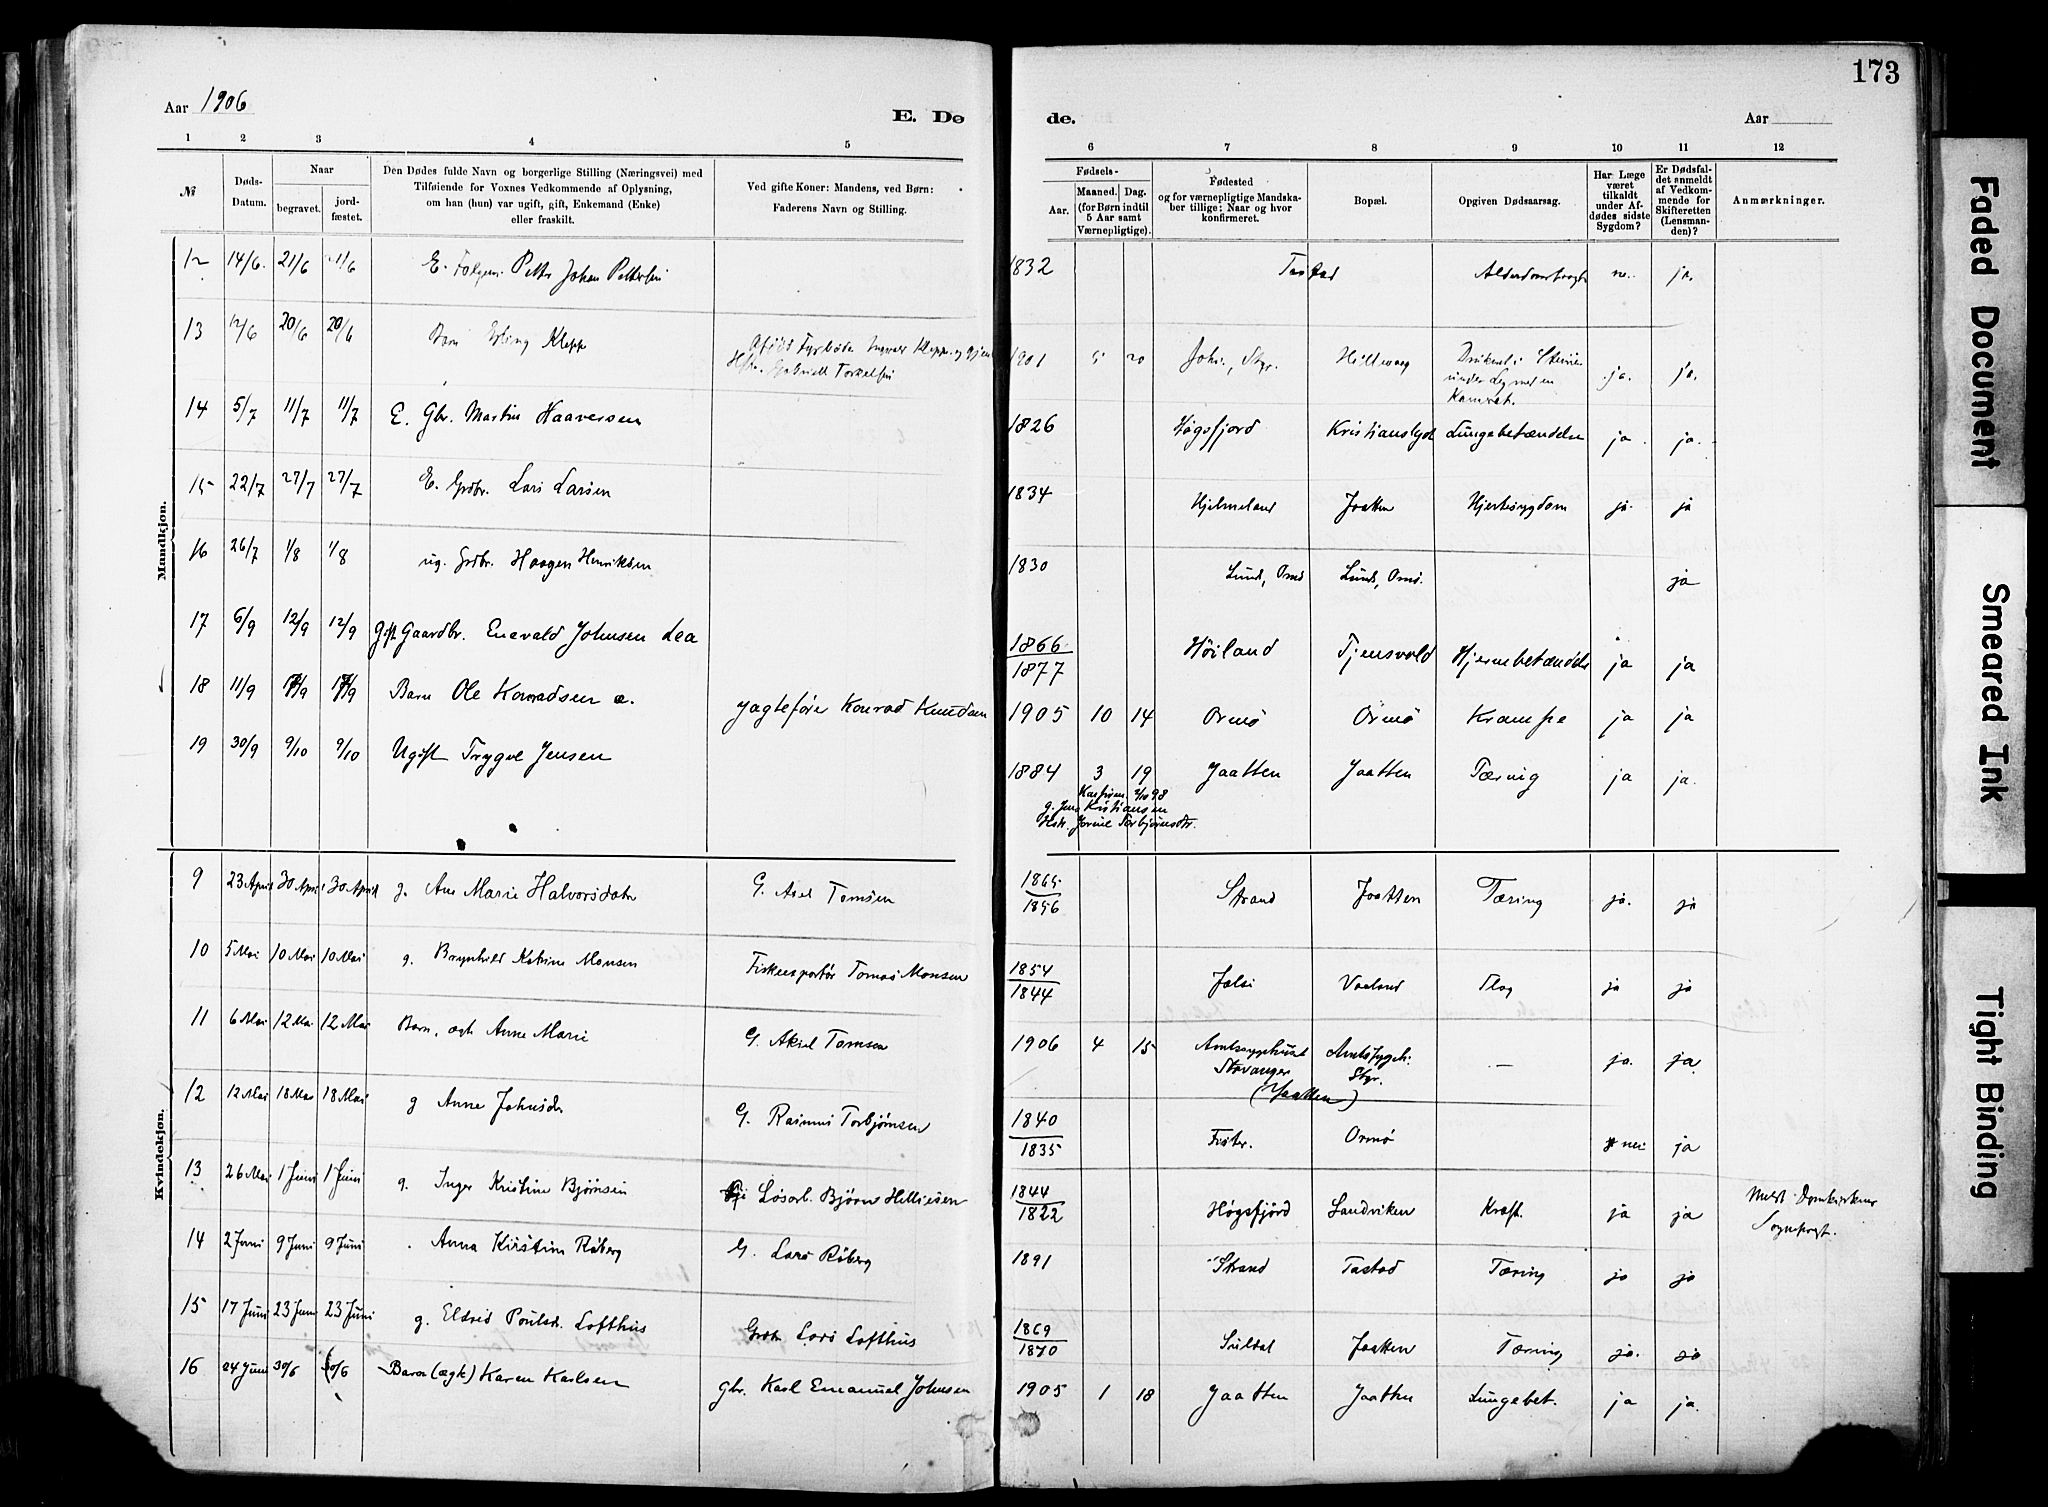 Aar 1906
E. Dø
de.
Aar
173
1 2 3 4 5 6 7 8 9 10 11 12
№
Døds-Datum.
Naar
begravet.
jordfæstet.
Den Dødes fulde Navn og borgerlige Stilling (Næringsvei) med
Tilføiende for Voxnes Vedkommende af Oplysning,
om han (hun) var ugift, gift, Enkemand (Enke)
eller fraskilt.
Ved gifte Koner: Mandens, ved Børn:
Faderens Navn og Stilling.
Fødsels-
Aar.
Maaned. Dag.
(for Børn indtil
5 Aar samt
Værnepligtige).
Fødested
og for værnepligtige Mandskaber tillige: Naar og hvor
konfirmeret.
Bopæl.
Opgiven Dødsaarsag.
Har Læge
været
tilkaldt
under Afdødes sidste
Sygdom?
Er Dødsfaldet anmeldt
af Vedkommende for
Skifteretten
(Lensmanden)?
Anmærkninger.
Mandkjøn.
12 14/6. 21/6 21/6 E. Johan Pettersen 1832 Tastad ja.
13 12/6 20/6 20/6 Barn Erling Klepp 1901 5 20 Hillevaag ja. ja.
under Leg med en
Kamerat.
14 5/7 11/7 11/7 E. Gbr. Martin Haaversen 1826 Høgsfjord Kristianslyst Lungebetændelse ja ja.
15 22/7 27/7 27/7 E. Grdbr. Lars Larsen 1834 Hjelmeland Jaatten Hjertesygdom ja. ja
16 26/7 1/8 1/8 ug. Grdbr. Haagen Henriksen 1830 Lunde, Ormø Lunde, Ormø. ja
17 6/9 12/9 12/9 Gift Gaardbr. Enevald Johnsen Lea 1866/1877 Höiland Tjensvold Hjernebetændelse ja ja
18 11/9 17/9 17/9 Barn Ole Konradsen æ. Jagtefører Konrad Knudsen 1905 10 14 Ormø Ormø Krampe ja ja
19 30/9 9/10 9/10 Ugift Trygve Jensen 1884 3 19 Jaatten Jaatten Tæring ja ja.
Konfirm. 2/10 98
g. Jens Kristiansen
Hstr. Torbjørnsdtr.
Kvindekjøn.
9 23 April 30 April 30 April g. Ane Marie Halvorsdatr G. Axel Tomsen 1865/1856 Strand Jaatten Tæring ja. ja
10 5 Mai 10 Mai 10 Mai g. Brynhild Katrine Monsen Fiskeexportør Tomas Monsen 1854/1844 Jelsi Vaaland Slag ja ja
11 6 Mai 12 Mai 12 Mai Barn, ægte Anne Marie G. Aksel Tomsen 1906 4 15 Amtssygehuset
Stavanger
(Jaatten) Amtssygeh.
Stgr. — ja. ja
12 12 Mai 18 Mai 18 Mai g Anne Johnsdr G. Rasmus Torbjørnsen 1840/1835 Fister. Ormø nei ja
13 26 Mai 1 Juni 1 Juni g. Inger Kristine Bjørnsen Løsarb. Bjørn Helliesen 1844/1822 Høgsfjörd Sandviken Kræft. ja ja Meldt Domkirkens
Sogneprst.
14 2 Juni 9 Juni 9 Juni Anna Kirstine Røberg G. Lars Røberg 1891 Strand Tastad Tæring ja ja
15 17 Juni 23 Juni 23 Juni g. Eldrid Poulsdr. Lofthus Grdbr. Lars Lofthus 1869/1870 Suldal Jaatten Tæring ja. ja
16 24 Juni 30/6 30/6 Barn (ægte) Karen Karlsen Gbr. Karl Emanuel Johnsen 1905 1 18 Jaatten Jaatten Lungebet. ja ja.
Faded Document
Smeared Ink
Tight Binding